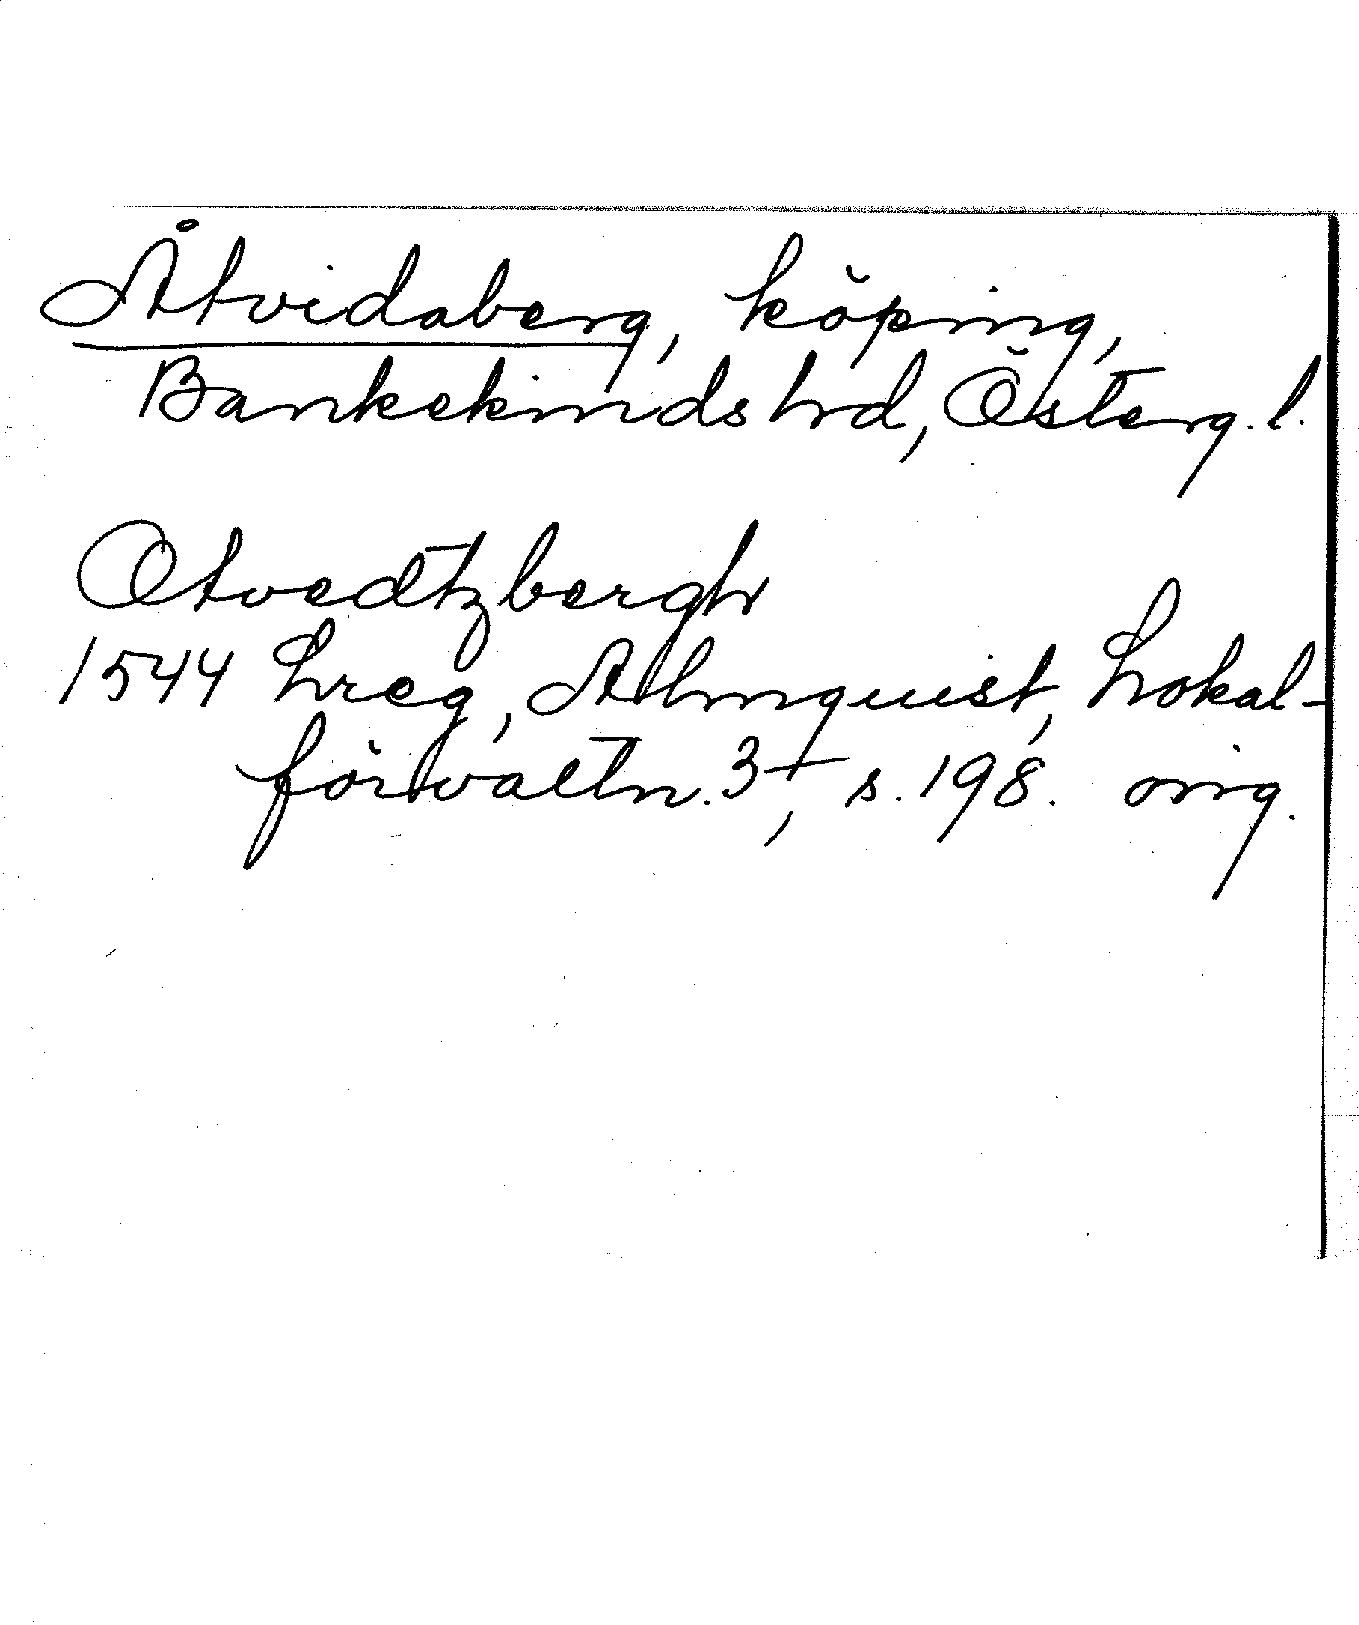 Åtvidaberg, köping,
Bankekinds hrd, Österg. l.
Otvedtzbergh
1544 Lreg, Almquist, Lokal-
förvaltn. 3, s. 198. orig.